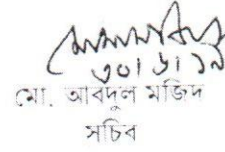 ৩০/৬/১৯
মো. আবদুল মজিদ
সচিব